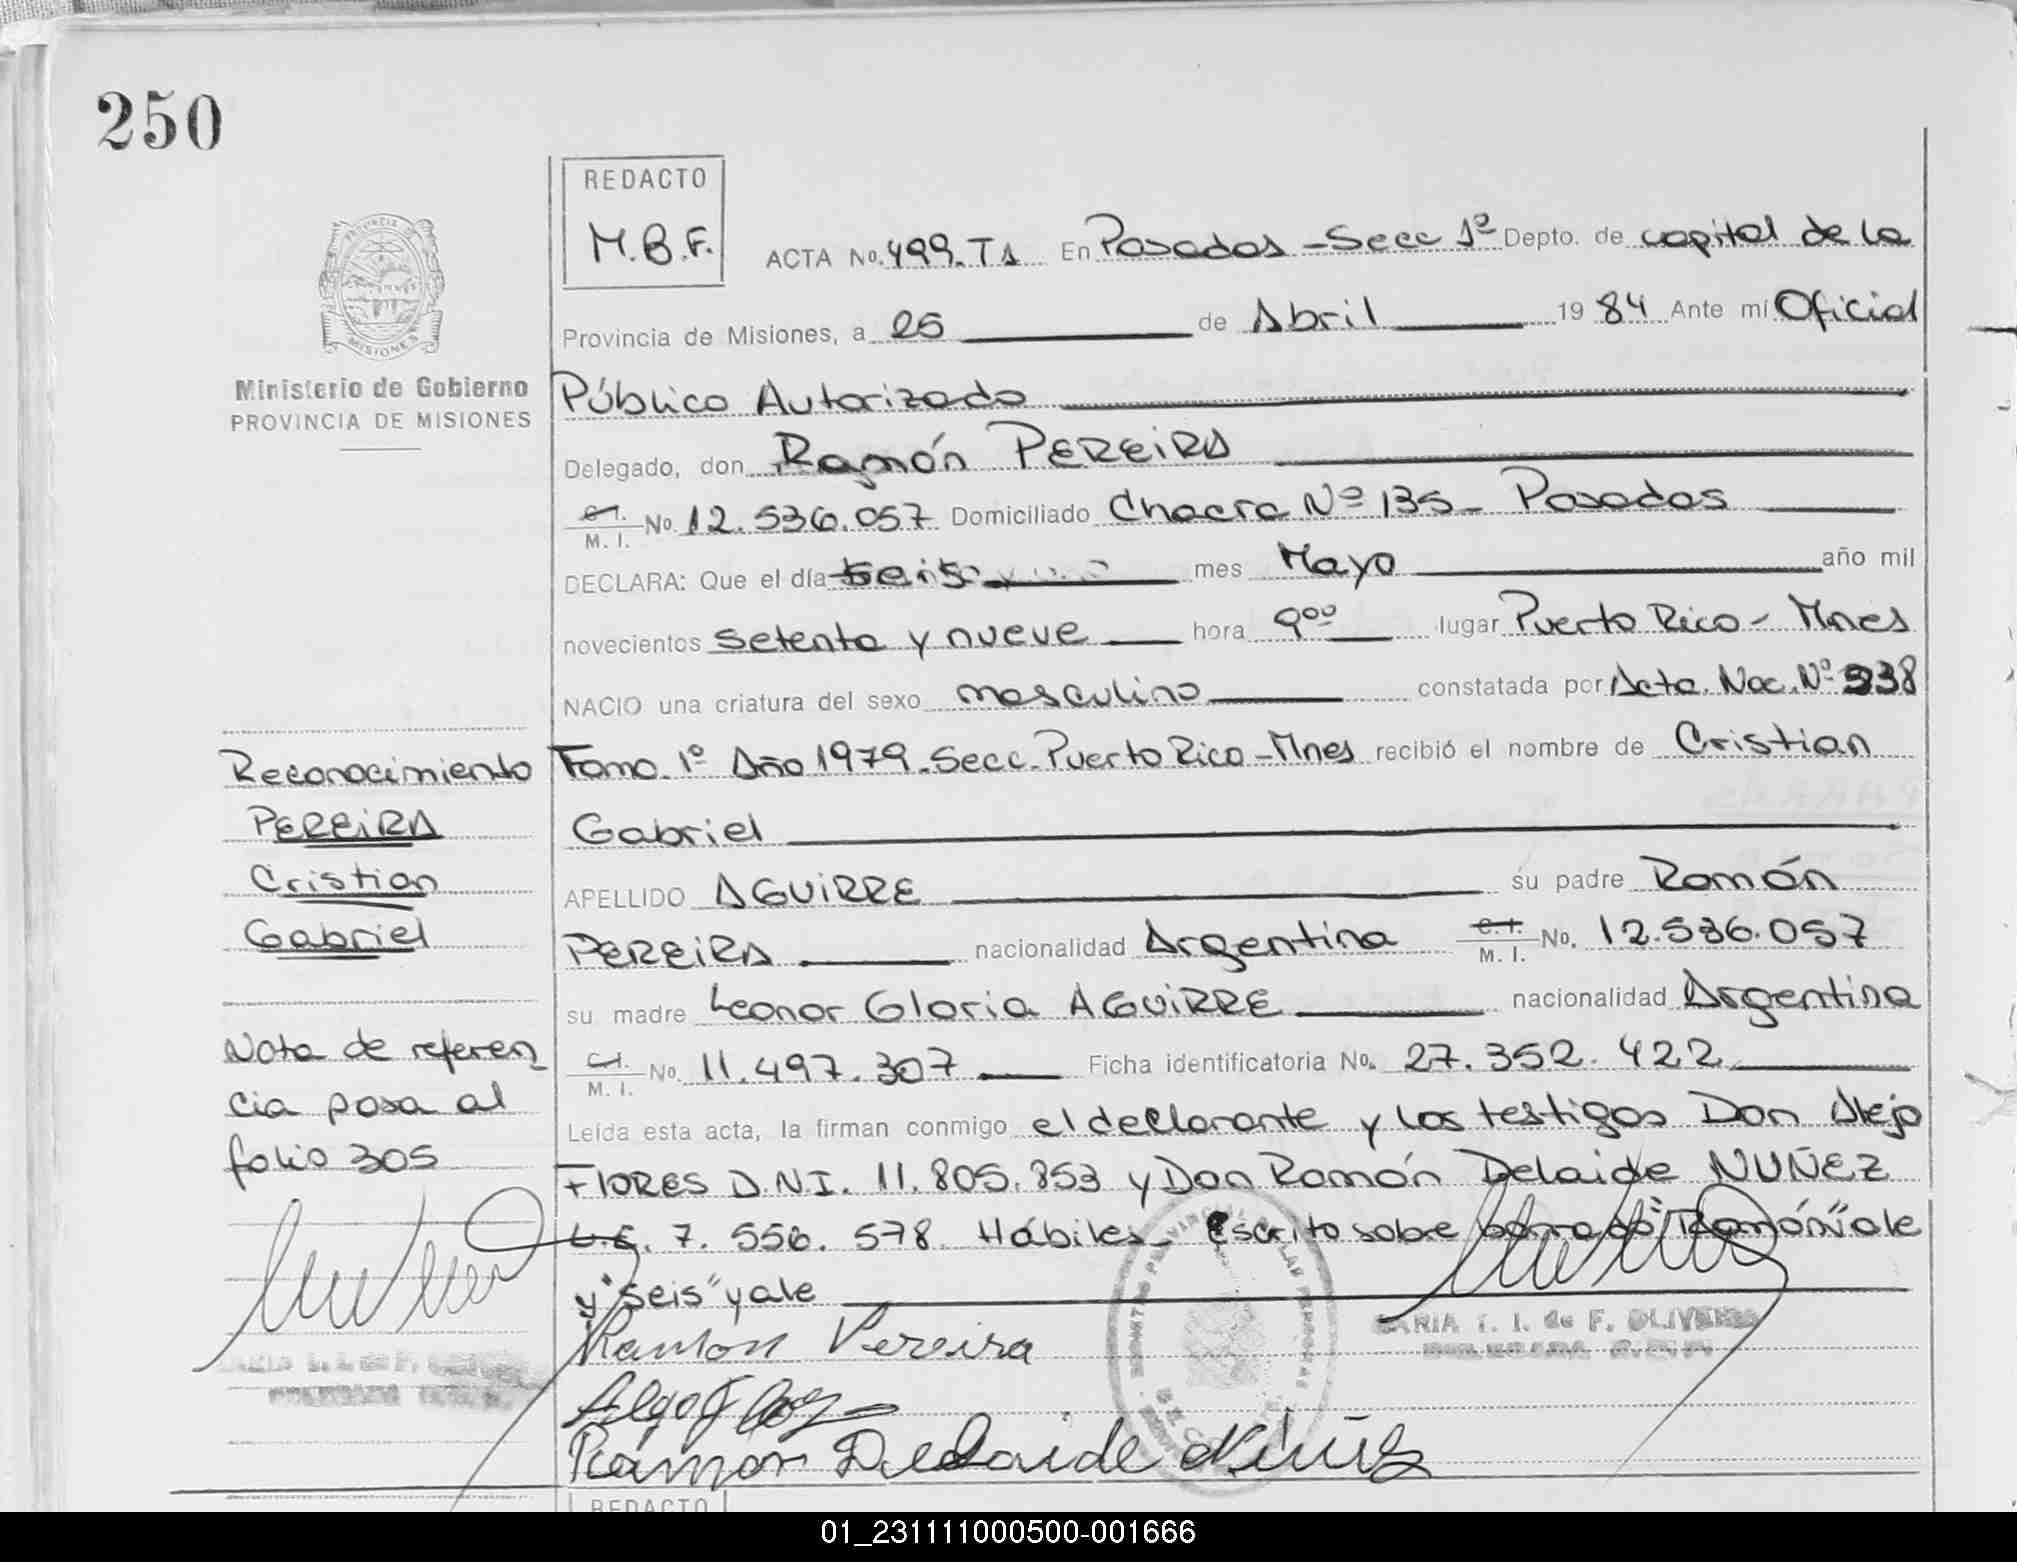 250
REDACTO
M.B.F.
ACTA No. 499. T1 En Posadas - Secc 1ª Depto. de capital de la
Provincia de Misiones, a 25 de Abril 1984 Ante mí Oficial
Ministerio de Gobierno
PROVINCIA DE MISIONES
Público Autorizado
Delegado, don Ramón PEREIRA
C.I. M. I. No. 12.536.057 Domiciliado Chacra Nº 135 - Posadas
DECLARA: Que el día seis mes Mayo año mil
novecientos setenta y nueve hora 9⁰⁰ lugar Puerto Rico - Mnes
NACIO una criatura del sexo masculino constatada por Acta. Nac. Nº 938
Tomo 1º Año 1979. Secc. Puerto Rico - Mnes recibió el nombre de Cristian
Gabriel
APELLIDO AGUIRRE su padre Ramón
PEREIRA nacionalidad Argentina C.I. M. I. No. 12.536.057
su madre Leonor Gloria AGUIRRE nacionalidad Argentina
C.I. M. I. No. 11.497.307 Ficha identificatoria No. 27.352.422
Leída esta acta, la firman conmigo el declarante y los testigos Don Alejo
FLORES D.N.I. 11.805.853 y Don Ramón Delaide NUÑEZ
L.E. 7.556.578 Hábiles - Escrito sobre borrado "Ramón" vale
y "seis" vale
Reconocimiento
PEREIRA
Cristian
Gabriel
Nota de referen
cia pasa al
folio 305
Ramon Pereira
Ramon Delaide Nuñez
MARIA T. I. de F. OLIVEIRA
REDACTO
01_231111000500-001666